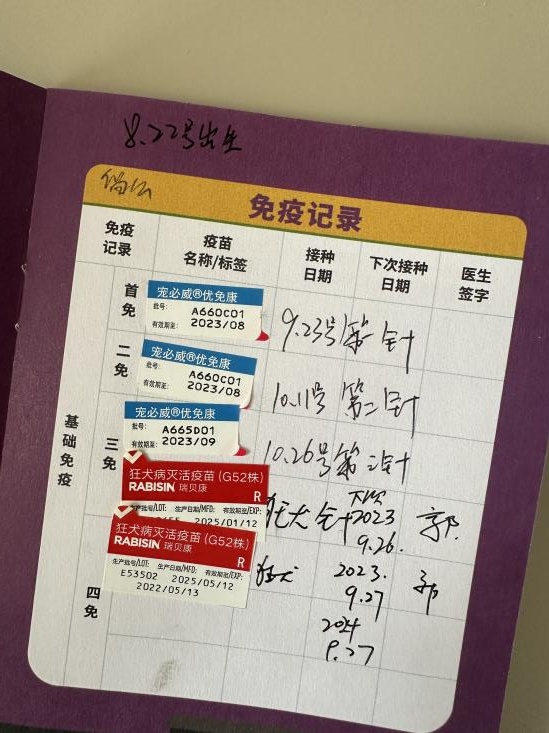 8.22号出生
免疫记录
免疫
记录
疫苗
名称/标签
接种
日期
下次接种
日期
医生
签字
基础免疫
首免
宠必威®优免康
批号: A660C01
有效期至: 2023/08
9.23号第一针
二免
宠必威®优免康
批号: A660C01
有效期至: 2023/08
10.11号 第二针
三免
宠必威®优免康
批号: A665D01
有效期至: 2023/09
10.26号第三针
狂犬病灭活疫苗(G52株)
RABISIN 瑞贝康
R
生产批号/LOT: 生产日期/MFD: 有效期至/EXP:
2025/01/12
狂犬针
下次
2023
9.26.
郭.
狂犬病灭活疫苗(G52株)
RABISIN 瑞贝康
R
生产批号/LOT: 生产日期/MFD: 有效期至/EXP:
E53502 2025/05/12
2022/05/13
狂犬
2023.
9.27
郭
四免
2024
9.27